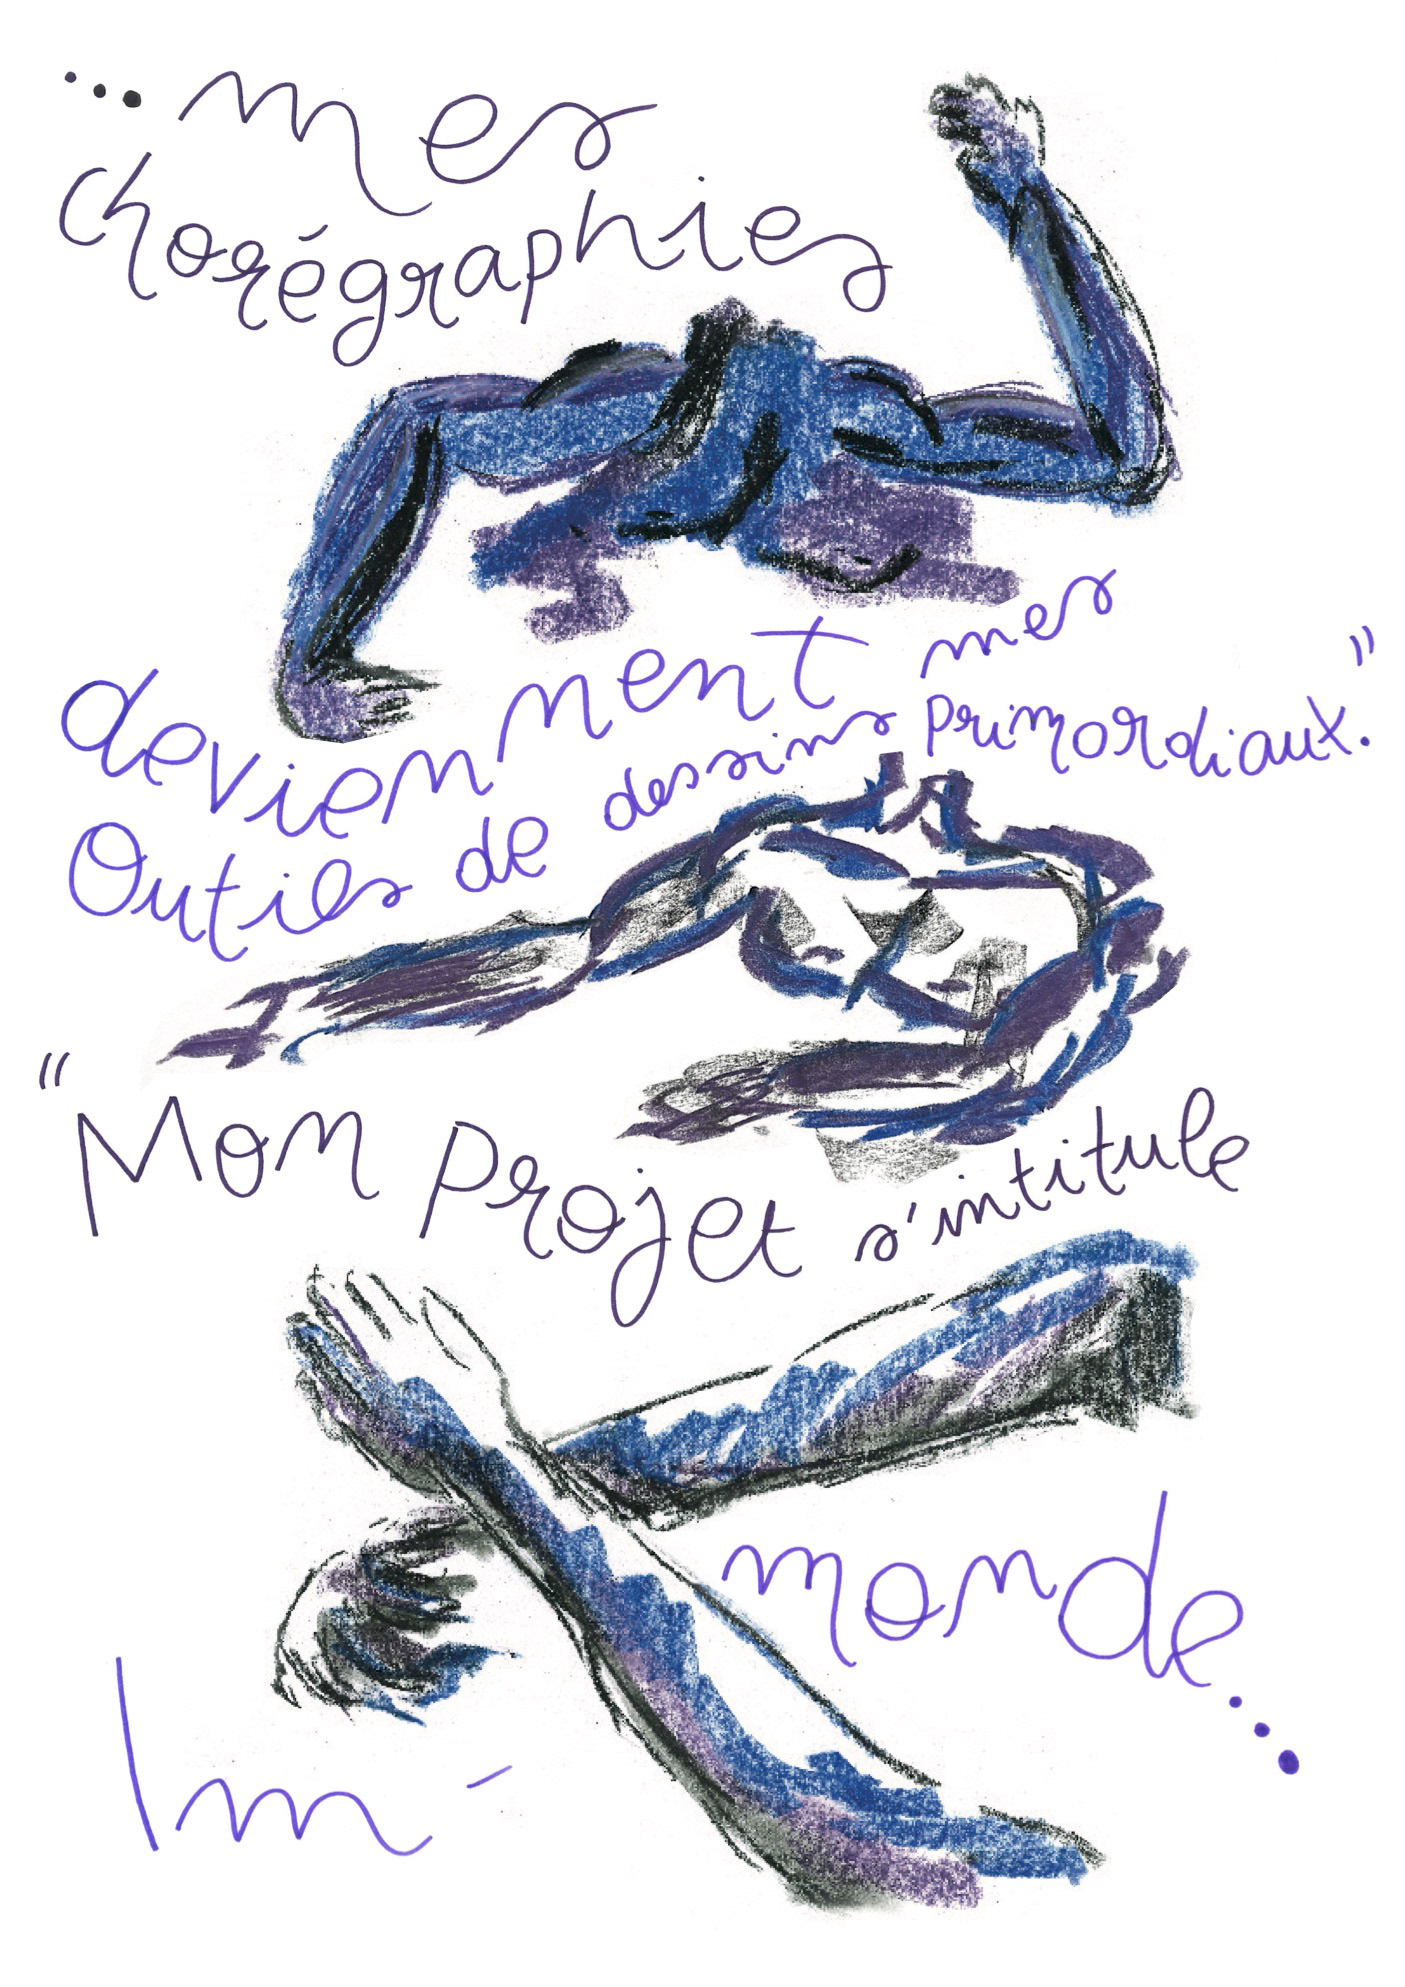 ... mes
chorégraphies
deviennent mes
Outils de dessins primordiaux."
"Mon projet s'intitule
Im-
monde...